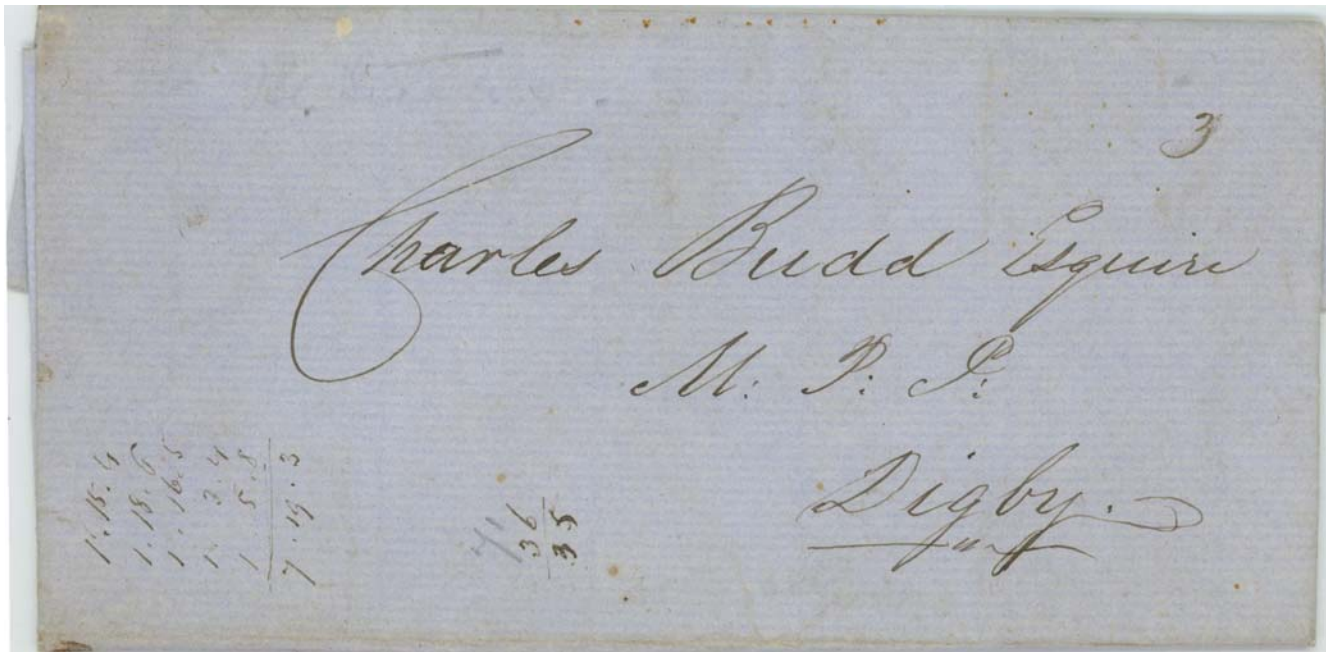 3
Charles Budd Esquire
M: P: P:
Digby.
1.15.4
1.18.6
1.16.5
1. 3.4
1 5.8
7.19.3
36
35